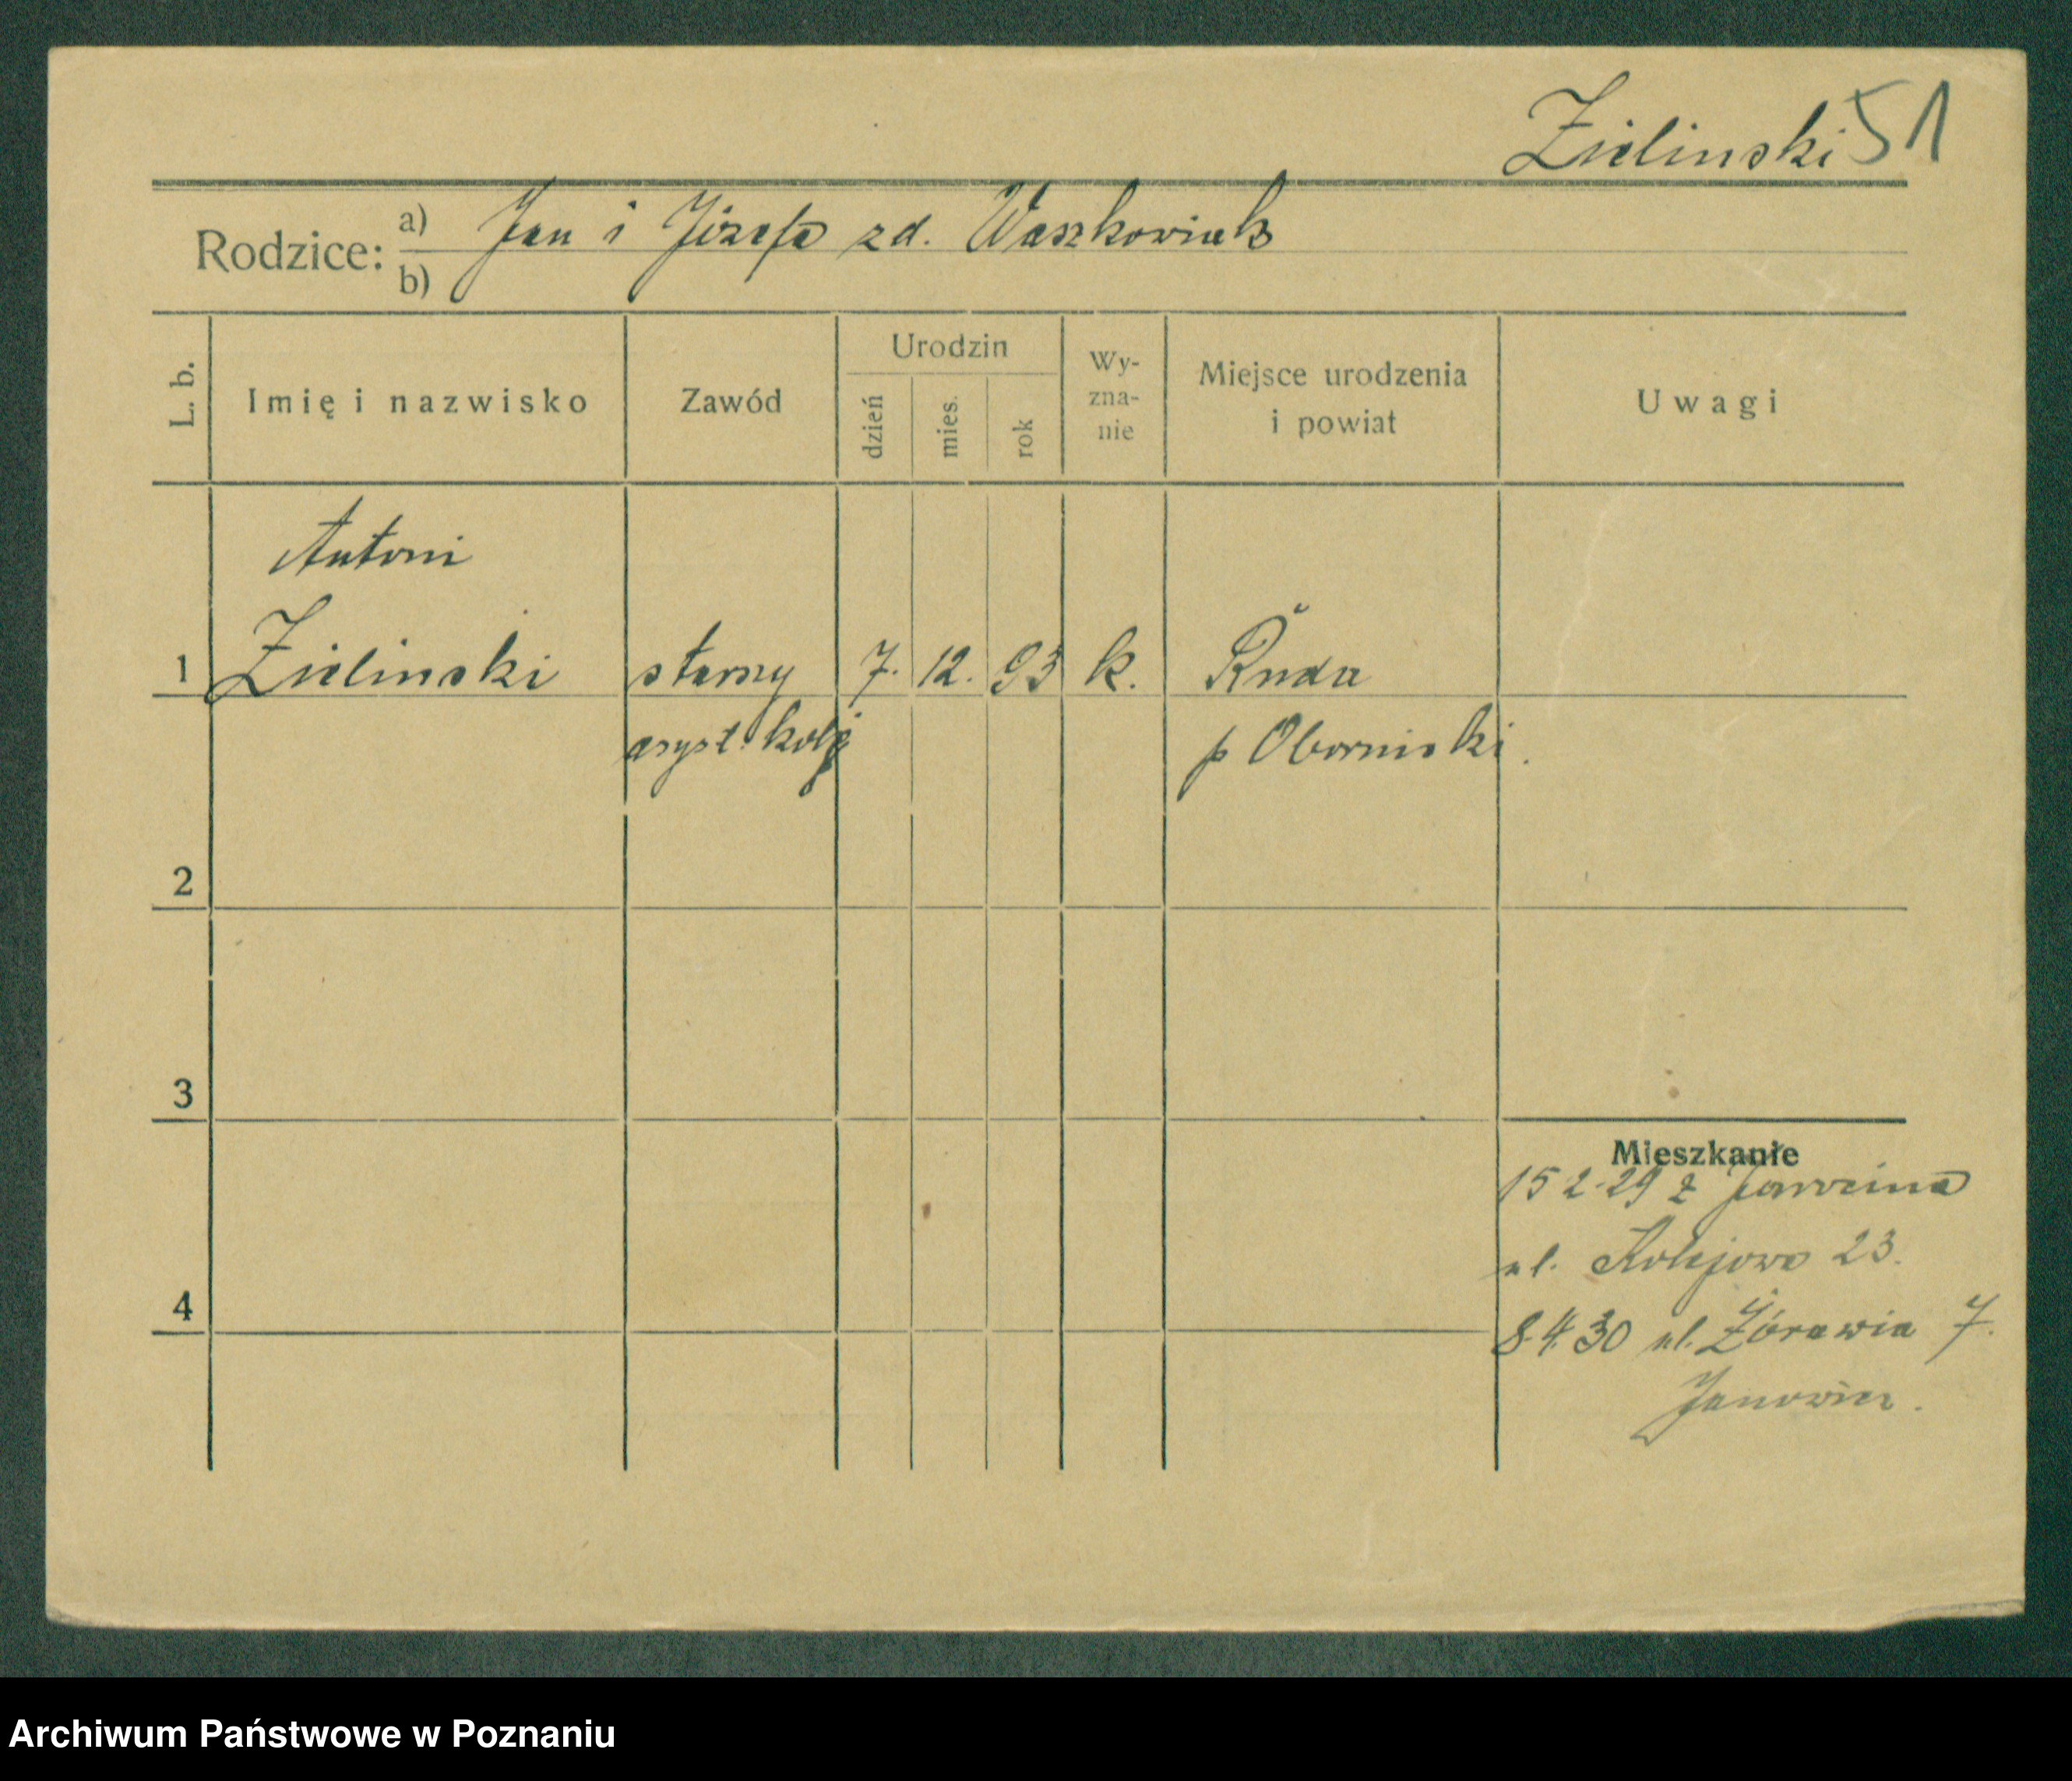 Zielinski 51
Rodzice: a) Jan i Józefa zd. Waszkowiak
b)
L. b. Imię i nazwisko Zawód Urodzin dzień mies. rok Wy-zna-nie Miejsce urodzenia i powiat Uwagi
Antoni
1 Zielinski starszy 7. 12. 93 k. Ruda
asyst. kolej p Obornicki.
2
3
Mieszkanie
15 2.29 z Jarocina
ul. Kolejowa 23.
4
8.4.30 ul. Żórawia 7.
Janowiec.
Archiwum Państwowe w Poznaniu